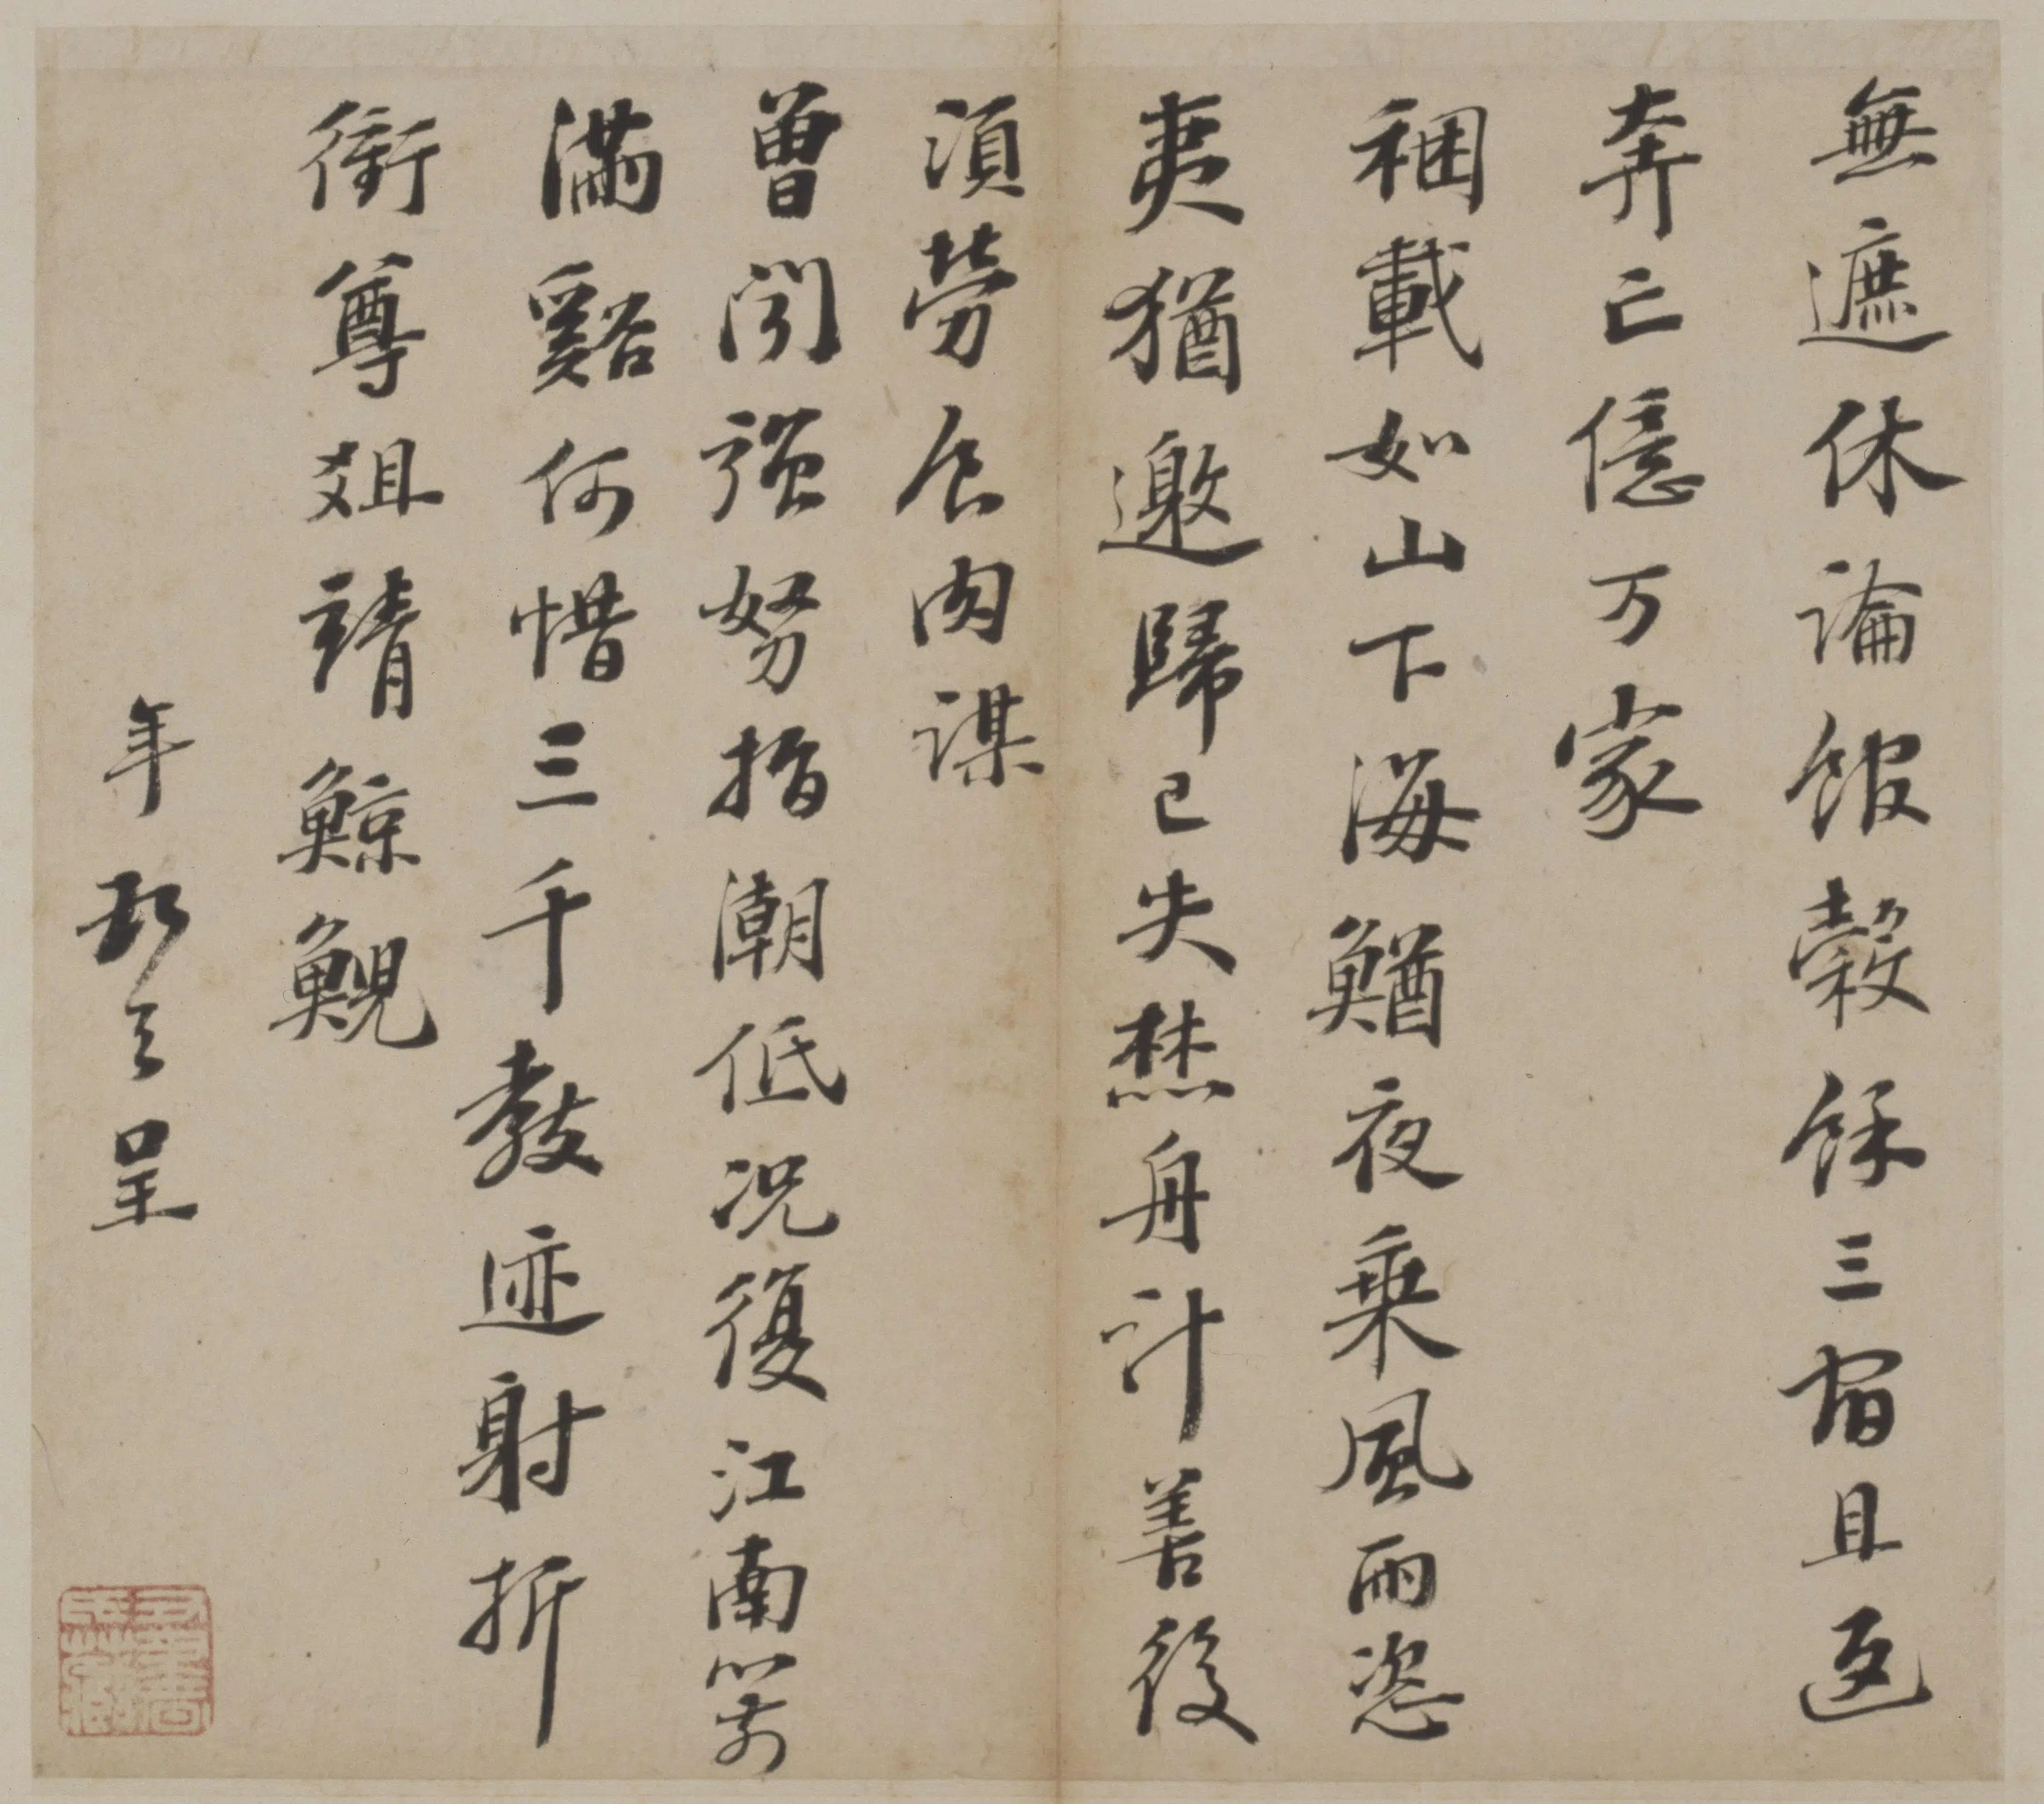 無遮休論館穀餘三宿且返
奔亡億万家
稇載如山下海鰌夜乘風雨恣
夷猶邀歸已失焚舟計善後
須勞食肉謀
曾聞強弩指潮低況復江南箭
滿谿何惜三千教迹射折
衝尊俎靖鯨鯢
年 呈